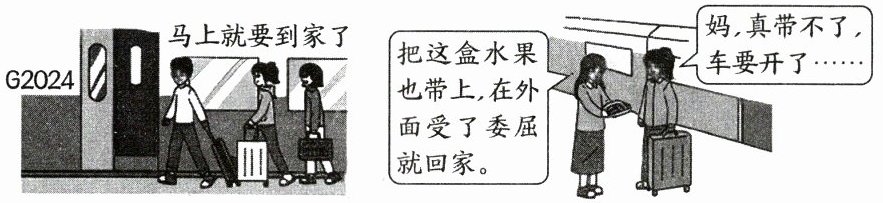 马上就要到家了
G2024
把这盒水果
也带上,在外
面受了委屈
就回家。
妈,真带不了,
车要开了……